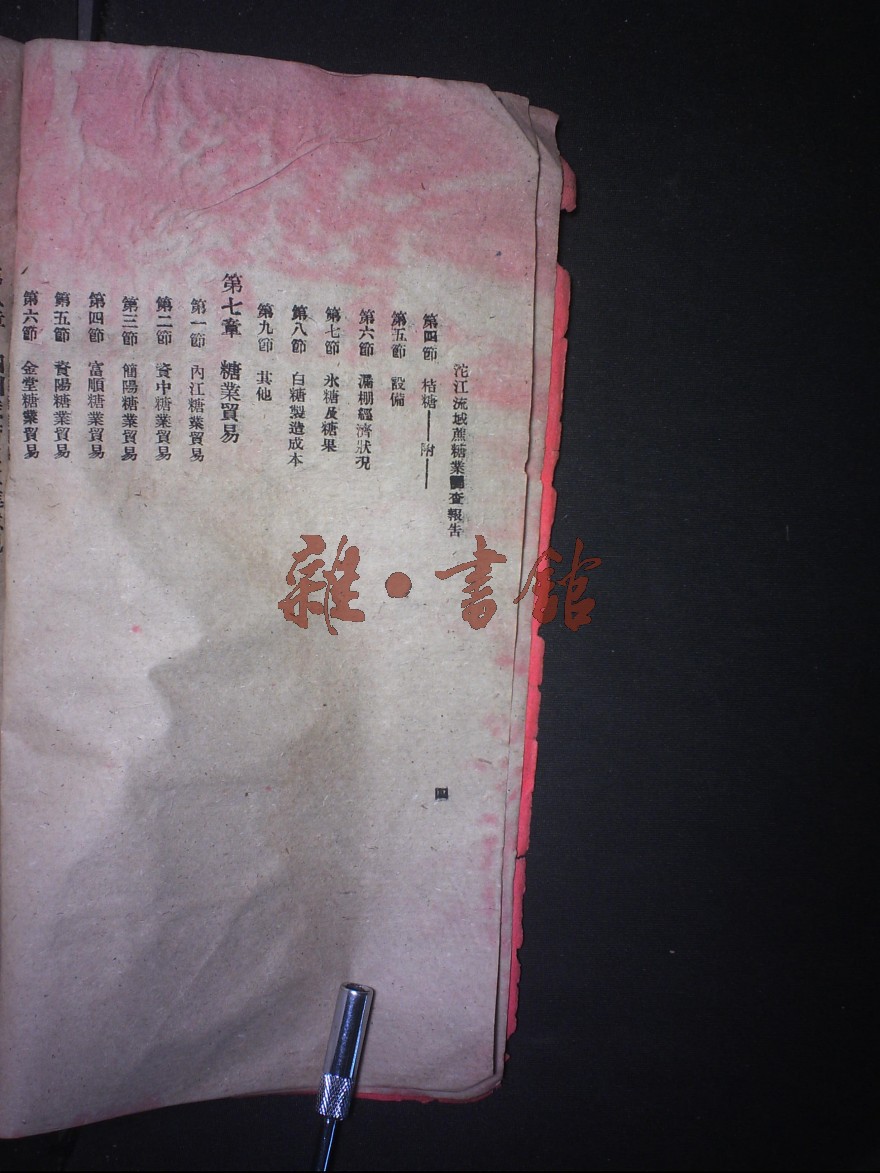 沱江流域蔗糖業調查報告
第四節 桔糖——附——
第五節 設備
第六節 漏棚經濟狀況
第七節 氷糖及糖果
第八節 白糖製造成本
第九節 其他
第七章 糖業貿易
第一節 內江糖業貿易
第二節 資中糖業貿易
第三節 簡陽糖業貿易
第四節 富順糖業貿易
第五節 資陽糖業貿易
第六節 金堂糖業貿易
四
雜·書館